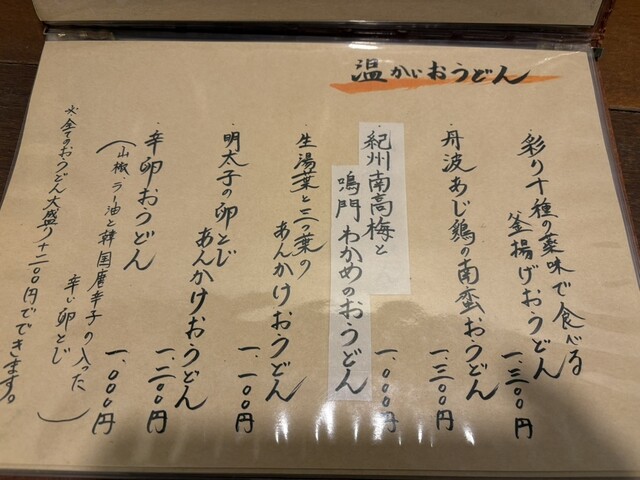 温かいおうどん
・彩り十種の薬味で食べる
釜揚げおうどん
一、三〇〇円
・丹波あじ鶏の南蛮おうどん
一、三〇〇円
・紀州南高梅と
鳴門わかめのおうどん
一、〇〇〇円
・生湯葉と三つ葉の
あんかけおうどん
一、一〇〇円
・明太子の卵とじ
あんかけおうどん
一、二〇〇円
・辛卵おうどん
一、〇〇〇円
(山椒ラー油と韓国唐辛子の入った
辛い卵とじ)
※全てのおうどん大盛り+二〇〇円でできます。